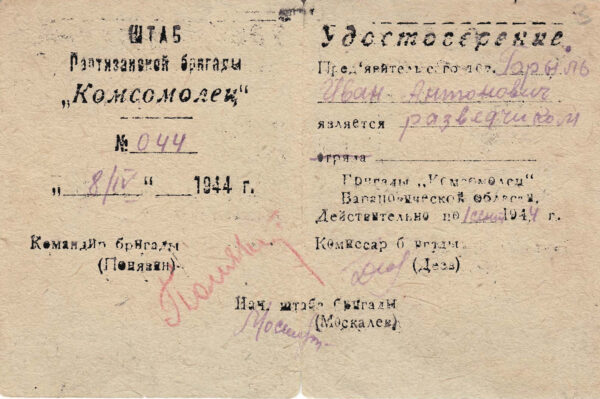 ШТАБ
Партизанской бригады
„Комсомолец“
№ 044
„ 8/IV “ 1944 г.
Командир бригады
(Понявин)
Удостоверение.
Пред'явитель сего тов. Гарыль
Иван Антонович
является разведчиком
отряда
Бригады „Комсомолец“
Барановической области.
Действительно по 1944 г.
Комиссар бригады
(Деев)
Нач. штаба бригады
(Москалев)